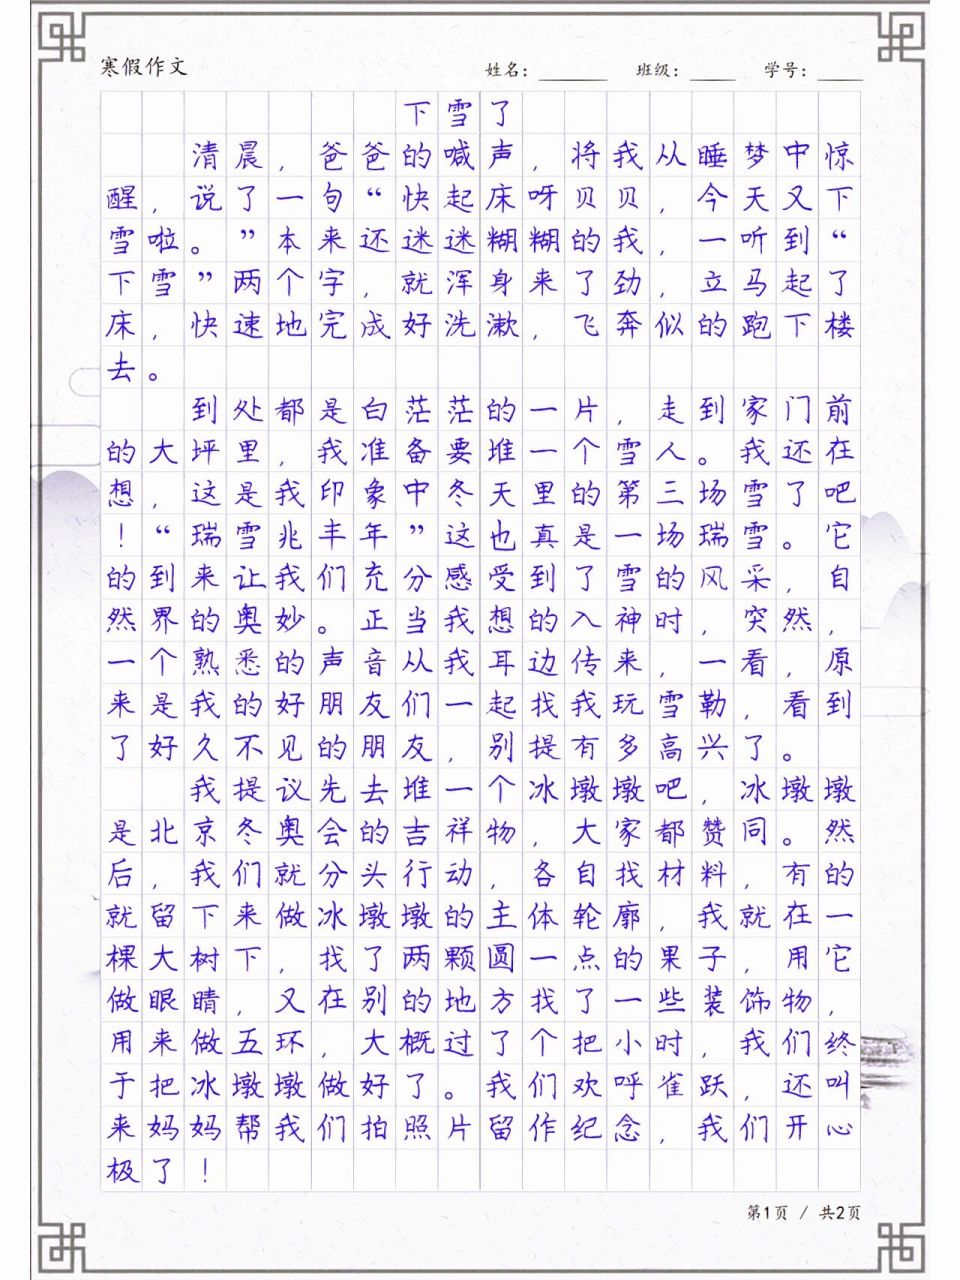 寒假作文
姓名：______ 班级：____ 学号：____
下雪了
清晨，爸爸的喊声，将我从睡梦中惊
醒，说了一句“快起床呀贝贝，今天又下
雪啦。”本来还迷迷糊糊的我，一听到“
下雪”两个字，就浑身来了劲，立马起了
床，快速地完成好洗漱，飞奔似的跑下楼
去。
到处都是白茫茫的一片，走到家门前
的大坪里，我准备要堆一个雪人。我还在
想，这是我印象中冬天里的第三场雪了吧
！“瑞雪兆丰年”这也真是一场瑞雪。它
的到来让我们充分感受到了雪的风采，自
然界的奥妙。正当我想的入神时，突然，
一个熟悉的声音从我耳边传来，一看，原
来是我的好朋友们一起找我玩雪勒，看到
了好久不见的朋友，别提有多高兴了。
我提议先去堆一个冰墩墩吧，冰墩墩
是北京冬奥会的吉祥物，大家都赞同。然
后，我们就分头行动，各自找材料，有的
就留下来做冰墩墩的主体轮廓，我就在一
棵大树下，找了两颗圆一点的果子，用它
做眼睛，又在别的地方找了一些装饰物，
用来做五环，大概过了个把小时，我们终
于把冰墩墩做好了。我们欢呼雀跃，还叫
来妈妈帮我们拍照片留作纪念，我们开心
极了！
第1页 / 共2页